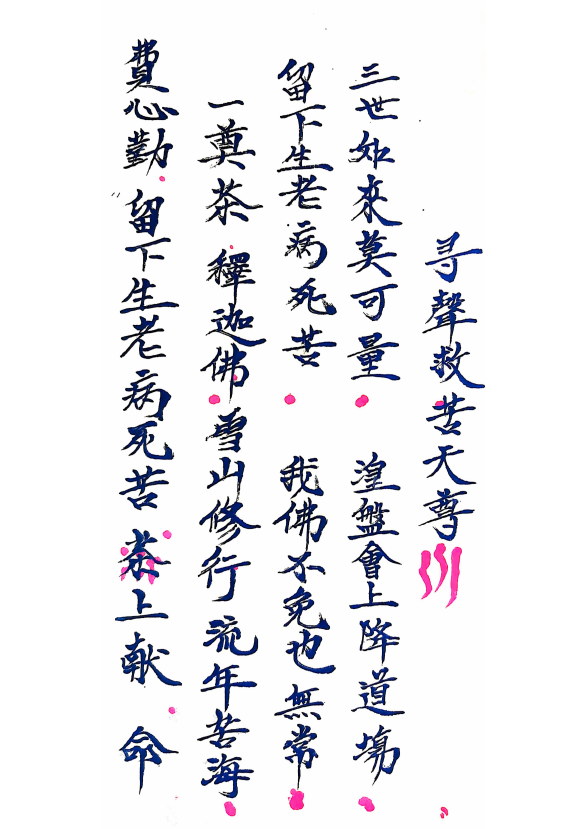 寻聲救苦天尊
三世如來莫可量 湟盤會上降道塲
留下生老病死苦 我佛不免也無常
一奠茶 釋迦佛雪山修行流年苦海
費心勤 留下生老病死苦 茶上献 命